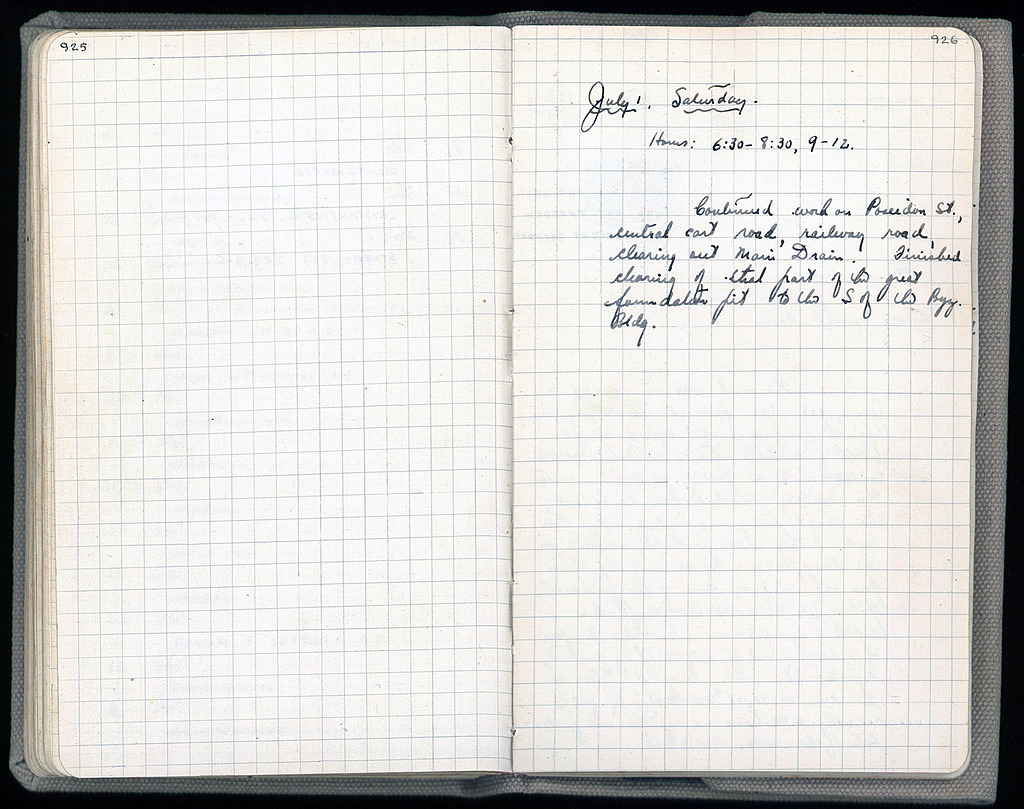 925
926
July 1. Saturday.
Hours: 6:30 - 8:30, 9-12.
Continued work on Poseidon St.,
central cart road, railway road,
clearing out Main Drain. Finished
clearing of that part of the great
foundation pit to the S of the Byz.
Bldg.